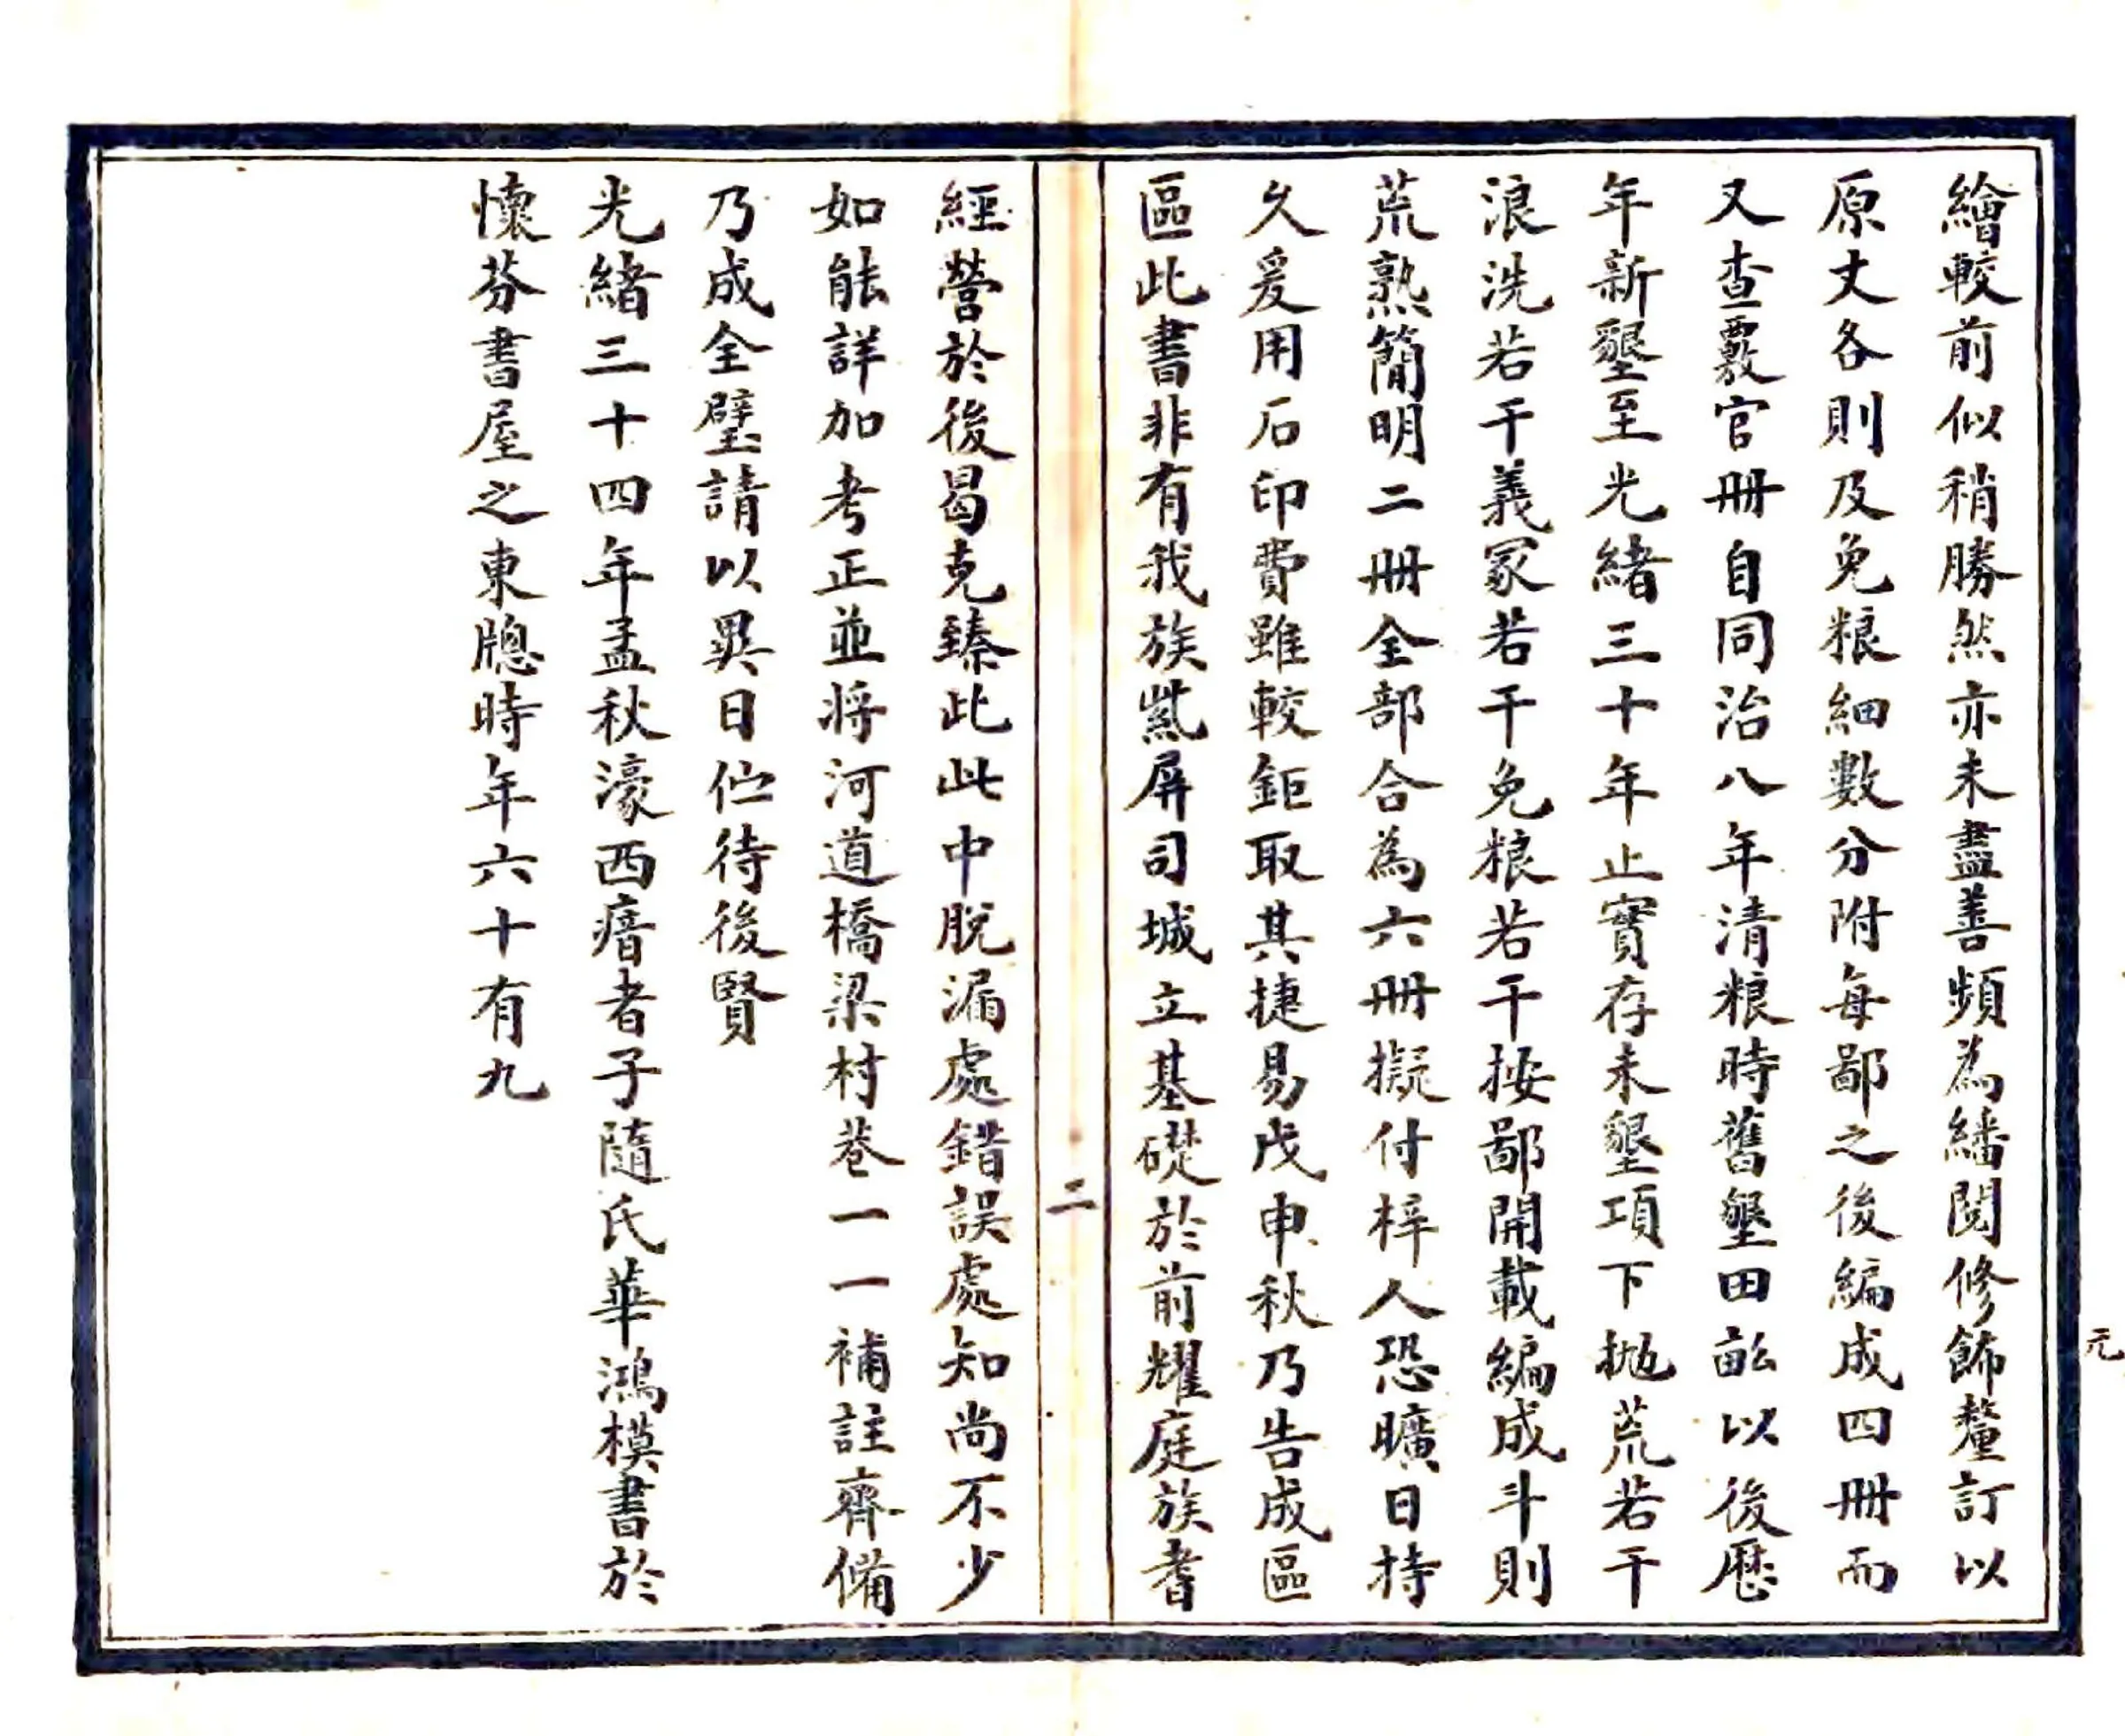 繪較前似稍勝然亦未盡善頻為繙閱修飾釐訂以
原丈各則及免粮細數分附每鄙之後編成四冊而
又查覈官冊自同治八年清粮時舊墾田畝以後歷
年新墾至光緒三十年止實存未墾項下抛荒若干
浪洗若干義冢若干免粮若干按鄙開載編成斗則
荒熟簡明二冊全部合為六冊擬付梓人恐曠日持
久爰用石印費雖較鉅取其捷易戊申秋乃告成區
區此書非有我族紫屏司城立基礎於前耀庭族耆
二
經營於後曷克臻此此中脫漏處錯誤處知尚不少
如能詳加考正並將河道橋梁村巷一一補註齊備
乃成全璧請以異日伫待後賢
光緒三十四年孟秋濠西瘖者子隨氏華鴻模書於
懷芬書屋之東牕時年六十有九
元